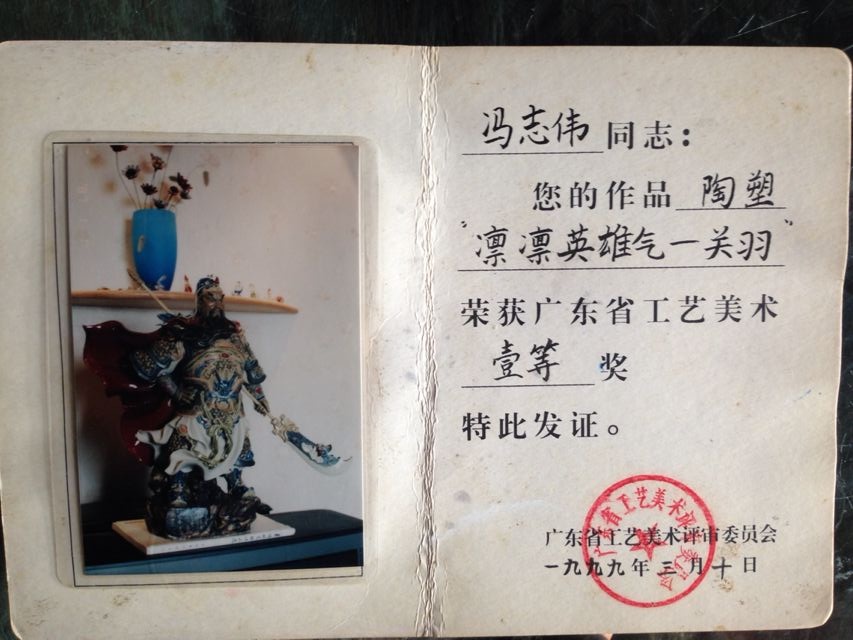 冯志伟同志：
您的作品陶塑
"凛凛英雄气一关羽"
荣获广东省工艺美术
壹等奖
特此发证。
广东省工艺美术评审委员会
一九九九年三月十日
广东省工艺美术评审委员会